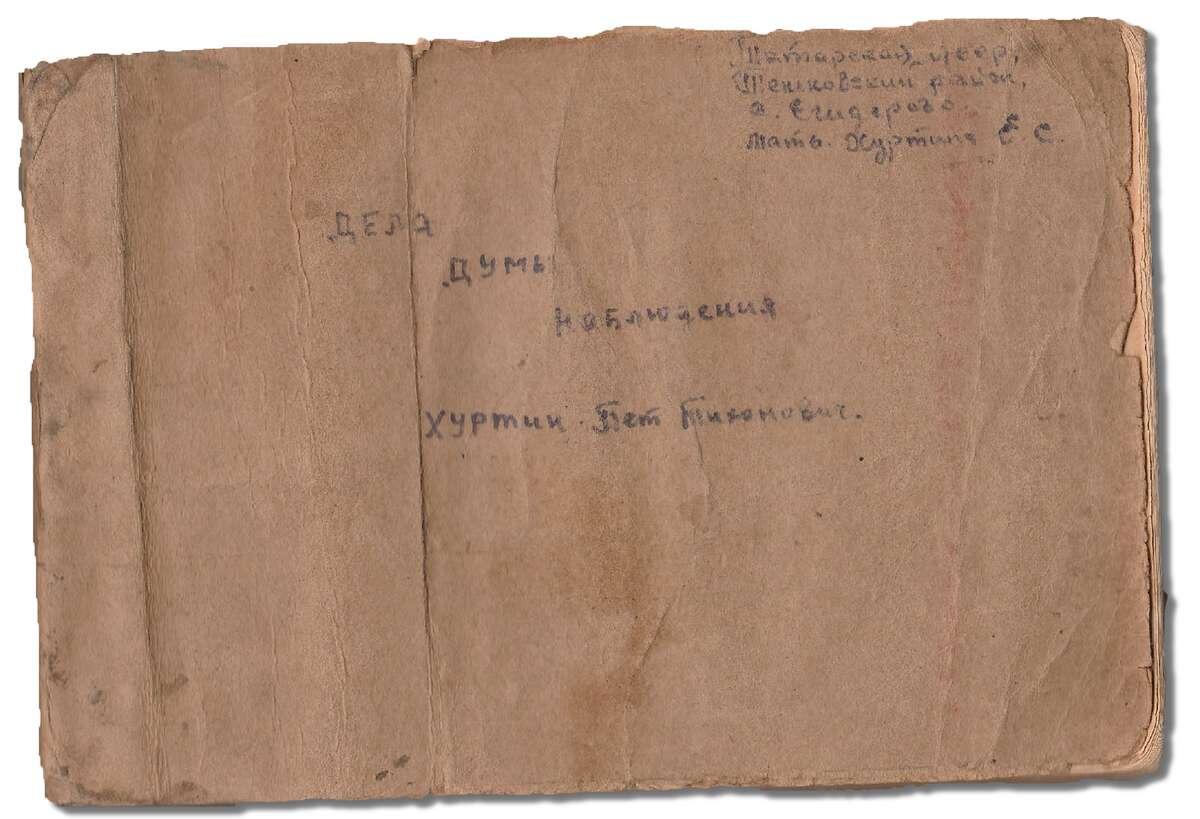 Татарская
Теньковский район,
с. Егидерево
Мать. Хуртина Е. С.
ДЕЛА
ДУМЫ
НАБЛЮДЕНИЯ
ХУРТИН Пет Тихонович.